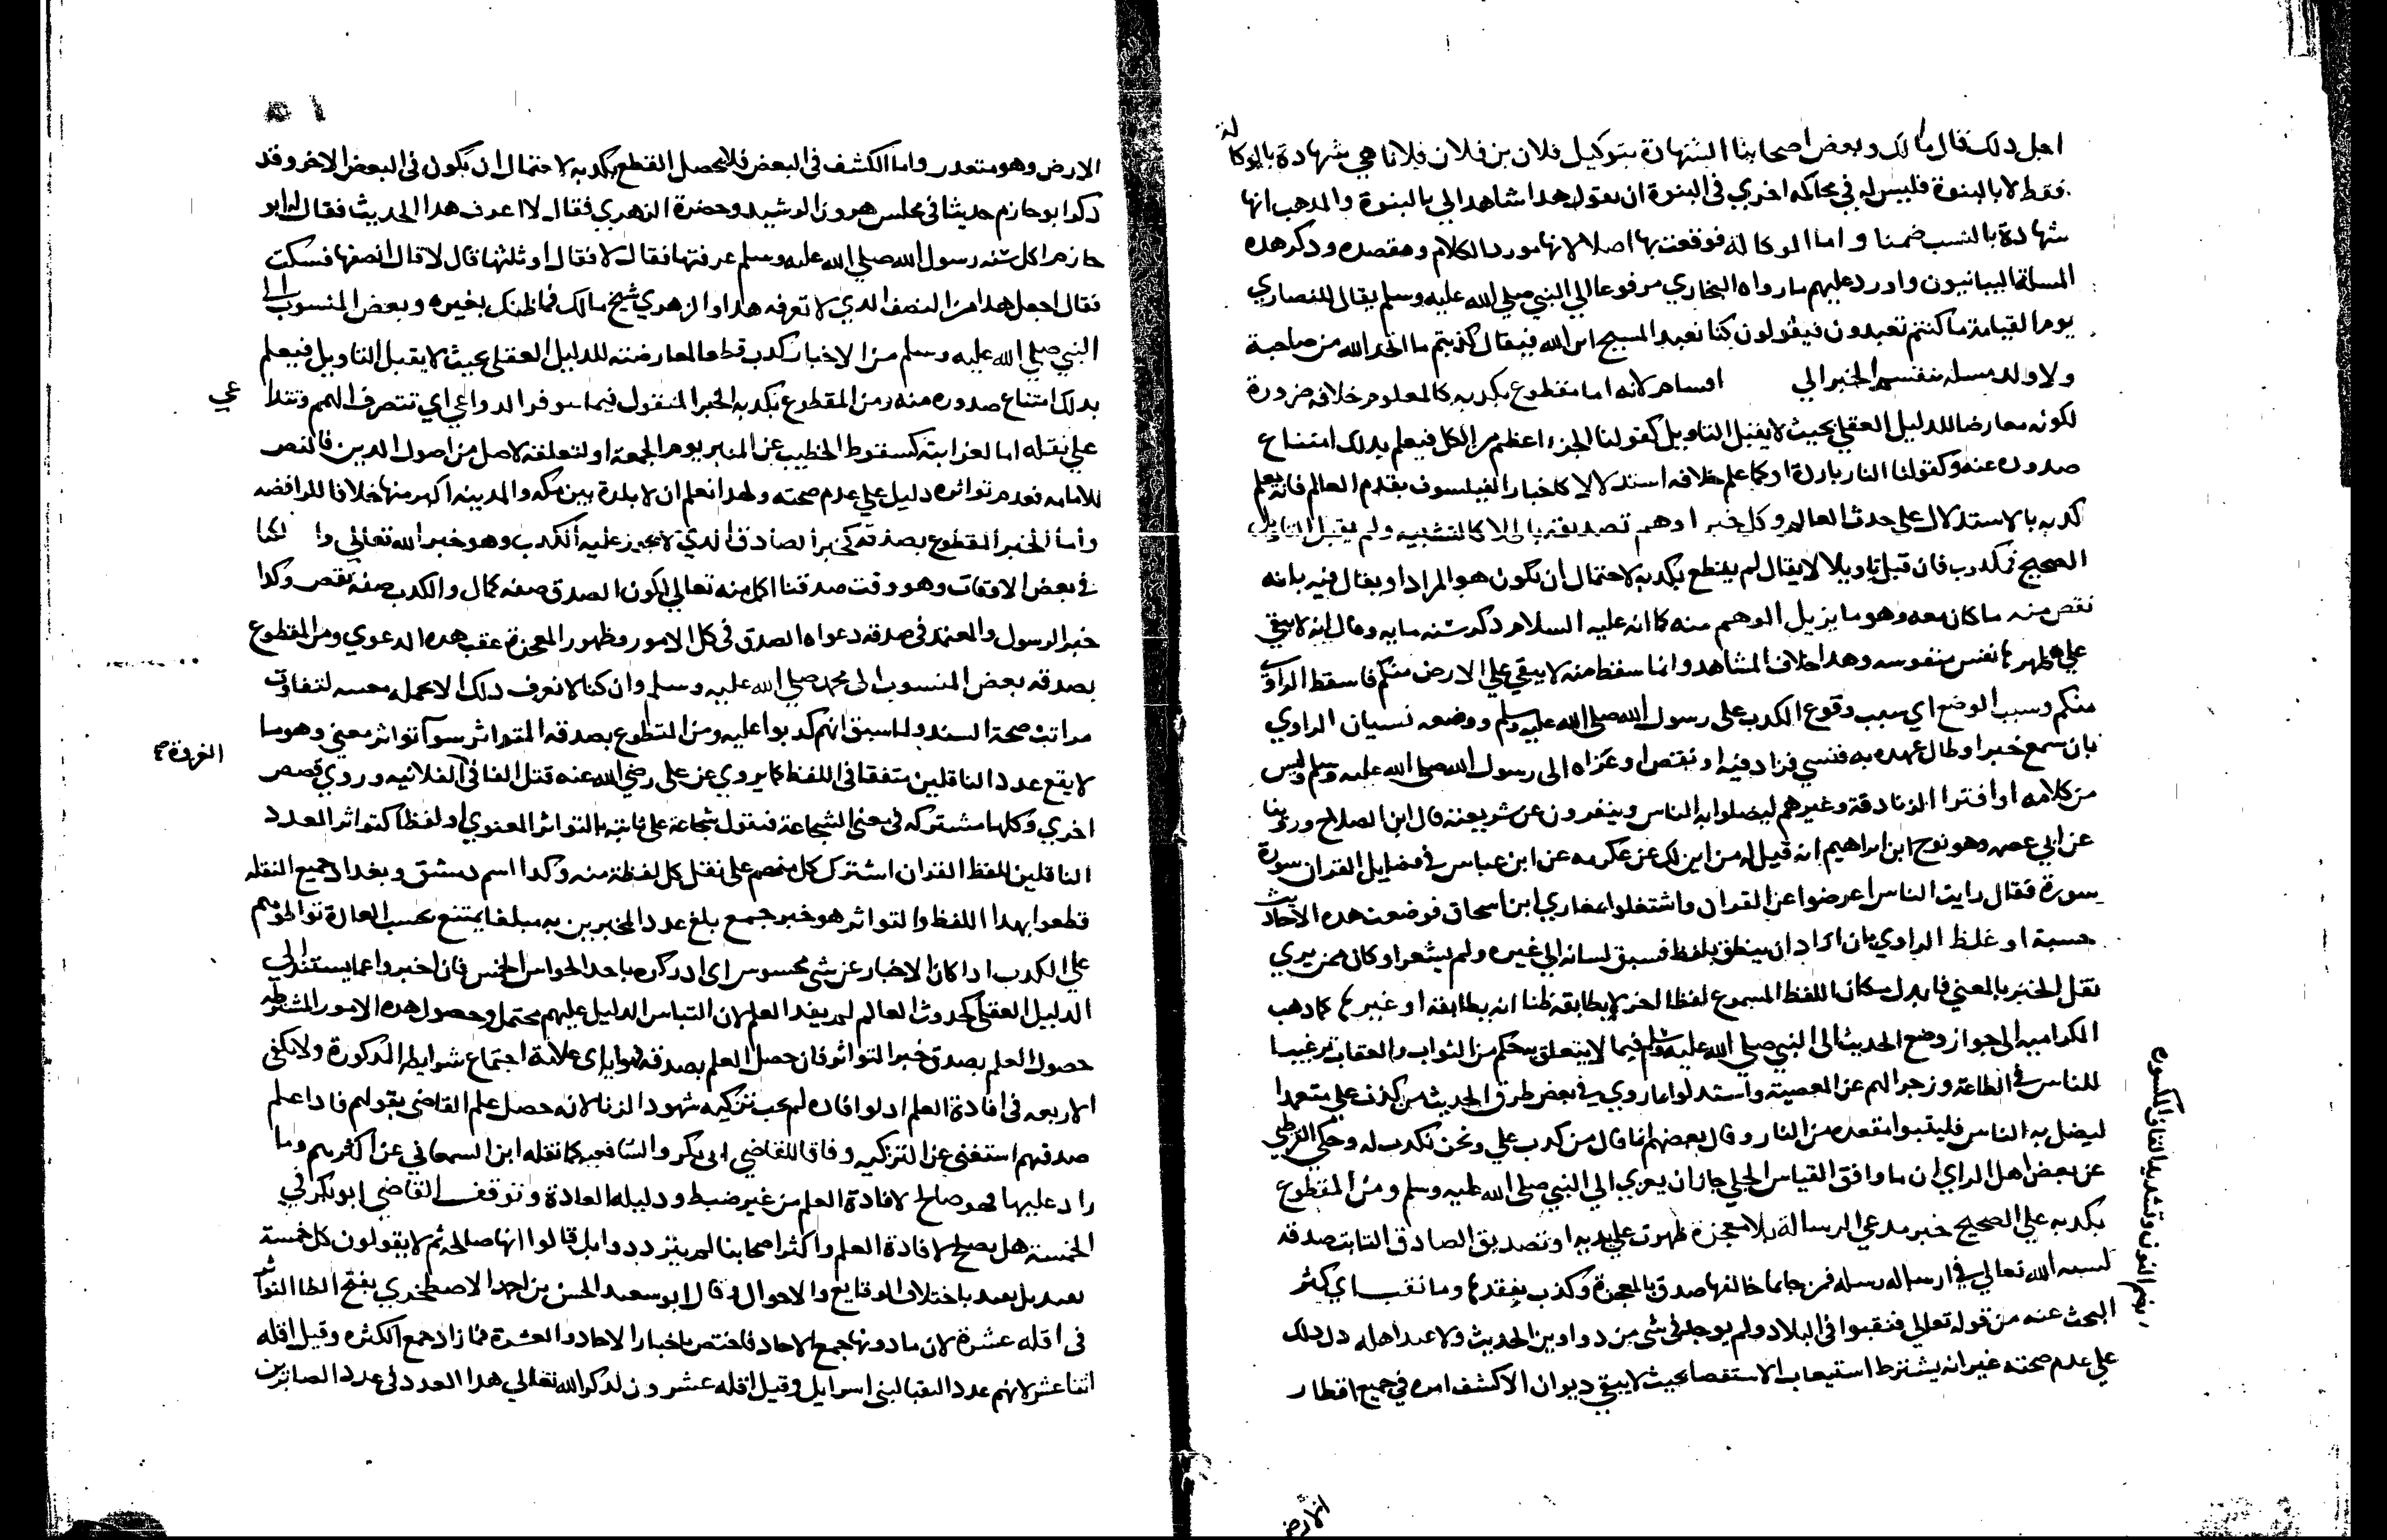 اجل دلك قال مالك وبعض اصحابنا الشهادة بتوكيل فلان بن فلان فلانا هي شهادة بالوكالة
فقط لا بالبنوة فليس له في محاكمه اخري في البنوة ان يقول هدا شاهد الي بالبنوة والمدهب انها
شهادة بالنسب ضمنا واما الوكالة فوقعت بها اصلا لانها مورد الكلام ومقصده ودكر هده
المسلة البيانيون واورد عليهم ما رواه البخاري مرفوعا الي النبي صلي الله عليه وسلم يقال للنصاري
يوم القيامة ما كنتم تعبدون فيقولون كنا نعبد المسيح ابن الله فيقال كذبتم ما اتخد الله من صاحبة
ولا ولد مسله ينقسم الخبر الي اقسام لانه اما مقطوع بكدبه كالمعلوم خلافه ضرورة
لكونه معارضا للدليل العقلي بحيث لا يقبل التاويل كقولنا الجزء اعظم من الكل فيعلم بدلك امتناع
صدوره عنه وكقولنا النار باردة او كما علم خلافه استدلالا كاخبار الفيلسوف بقدم العالم فانه يعلم
كدبه بالاستدلال علي حدث العالم وكل خبر اوهم تصديقه باطلا كالتشبيه ولم يقبل التاويل
الصحيح فمكدوب فان قبل تاويلا لا يقال لم يقطع بكدبه لاحتمال ان يكون هو المراد او يقال فيه بانه
نقص منه ما كان معه وهو ما يزيل الوهم منه كما انه عليه السلام دكر سنه مايه وقال انه لا يبقي
علي ظهرها نفس منفوسه وهدا خلاف المشاهد وانما سقط منه لا يبقي علي الارض منكم فاسقط الراوي
منكم وسبب الوضع اي سبب وقوع الكدب علي رسول الله صلي الله عليه وسلم ووضعه نسيان الراوي
بان سمع خبرا وطال عهده به فنسي فزاد فيه او نقص او عزاه الي رسول الله صلي الله عليه وسلم وليس
من كلامه او افترا الزنادقة وغيرهم ليضلوا به الناس وينفرون عن شريعته قال ابن الصلاح وروينا
عن ابي عصمه وهو نوح ابن ابراهيم انه قيل له من اين لك عن عكرمه عن ابن عباس في فضايل القران سورة
سورة فقال رايت الناس اعرضوا عن القران واشتغلوا بمغازي ابن اسحاق فوضعت هده الاحاديث
حسبة او غلط الراوي بان اراد ان ينطق بلفظ فسبق لسانه الي غيره ولم يشعر او كان ممن يري
نقل الخبر بالمعني فابدل مكان اللفظ المسموع لفظا اخر لا يطابقه ظنا انه يطابقه او غيرها كما دهب
الكراميه الي جواز وضع الحديث الي النبي صلي الله عليه وسلم فيما لا يتعلق بحكم من الثواب والعقاب ترغيبا
للناس في الطاعة وزجرا لهم عن المعصية واستدلوا بما روي في بعض طرق الحديث من كذب علي متعمدا
ليضل به الناس فليتبوا مقعده من النار وقال بعضهم انما قال من كدب علي ونحن نكدب له وحكي القرطبي
عن بعض اهل الراي ان ما وافق القياس الجلي جاز ان يعزي الي النبي صلي الله عليه وسلم ومن المقطوع
بكدبه علي الصحيح خبر مدعي الرسالة بلا معجزة ظهرت علي يديه او تصديق الصادق الثابت صدقه
لسبه الله تعالي في ارساله رسله فمن جا بما خالفها صدق بالمعجزة وكذب بفقدها وما نقب اي كثر
البحث عنه من قوله تعالي فنقبوا في البلاد ولم يوجد في شي من دواوين الحديث ولا عند اهله دل دلك
علي عدم صحته غير انه يشترط استيعاب الاستقصا بحيث لا يبقي ديوان الا كشف امره في جميع اقطار
بضم النون وتشديد القاف المكسوره
الارض
٥١
الارض وهو متعدر واما الكشف في البعض فلا يحصل القطع بكدبه لاحتمال ان يكون في البعض الاخر وقد
دكر ابو حازم حديثا في مجلس هرون الرشيد وحضرة الزهري فقال لا اعرف هدا الحديث فقال له ابو
حازم اكل سنه رسول الله صلي الله عليه وسلم عرفتها فقال لا فقال او ثلثها قال لا قال انصفها فسكت
فقال اجعل هدا من النصف الدي لا تعرفه هدا والزهري شيخ مالك فما ظنك بغيره وبعض المنسوب الي
النبي صلي الله عليه وسلم من الاخبار كدب قطعا لمعارضته للدليل العقلي بحيث لا يقبل التاويل فيعلم
بدلك امتناع صدوره منه ومن المقطوع بكدبه الخبر المنقول فيما توفر الدواعي اي تنصرف الهمم وتتداعي
علي نقله اما لغرابته كسقوط الخطيب عن المنبر يوم الجمعة او لتعلقه لاصل من اصول الدين فالنص
للامامه فعدم تواتره دليل علي عدم صحته ولهدا نعلم ان لا بلدة بين مكه والمدينه اكبر منها خلافا للرافضه
واما الخبر المقطوع بصدقه كخبر الصادق الدي لا يجوز عليه الكدب وهو خبر الله تعالي والا لكنا
في بعض الاوقات وهو وقت صدقنا اكل منه تعالي لكون الصدق صفه كمال والكدب صفة نقص وكدا
خبر الرسول والمعتمد في صدقه دعواه الصدق في كل الامور وظهور المعجزة عقب هده الدعوي ومن المقطوع
بصدقه بعض المنسوب الي محمد صلي الله عليه وسلم وان كنا لا نعرف دلك لتفاوت
مراتب صحة السند ولما سبق انهم كدبوا عليه ومن المقطوع بصدقه المتواتر سوآ تواتر معني وهو ما
لا يقع عدد الناقلين متفقا في اللفظ كما يروي عن علي رضي الله عنه قتل الفا في الفلانيه وروي قصص
الغزوة صح
اخري وكلها مشتركه في معني الشجاعة فنقول شجاعة علي ثابته بالتواتر المعنوي او لفظا كتواتر العدد
الناقلين للفظ القران اشترك كل منهم علي نقل كل لفظة منه وكدا اسم دمشق وبغداد جميع النقله
قطعوا بهدا اللفظ والتواتر هو خبر جمع بلغ عدد المخبرين به مبلغا يمتنع بحسب العادة تواطؤهم
علي الكدب ادا كان الاخبار عن شي محسوس اي ادركوه باحد الحواس الخمس فان اخبروا عما يستند الي
الدليل العقلي كحدوث العالم لم يفد العلم لان التباس الدليل عليهم محتمل وحصول هده الامور المشترطه
حصول العلم بصدق خبر التواتر فان حصل العلم بصدقه فهو اي علامة اجتماع شرايطه المدكورة ولا تكفي
الاربعه في افادة العلم اد لو افاده لم يجب تزكيه شهود الزنا لانه حصل علم القاضي بقولهم فادا علم
صدقهم استغني عن التزكيه وفاقا للقاضي ابي بكر والشافعيه كما نقله ابن السمعاني عن اكثرهم وما
زاد عليها فهو صالح لافادة العلم من غير ضبط ودليله العادة وتوقف القاضي ابو بكر في
الخمسة هل يصلح لافادة العلم واكثر اصحابنا لم يترددوا بل قالوا انها صالحة ثم لا يقولون كل خمسة
يفيد بل يفيد باختلاف الوقايع والاحوال وقال ابو سعيد الحسن بن احمد الاصطخري بفتح الطا التواتر
في اقله عشرة لان ما دونها جمع الاحاد فاختص باخبار الاحاد والعشرة فما زاد جمع الكثره وقيل اقله
اثنا عشر لانهم عدد النقبا لبني اسرايل وقيل اقله عشرون لدكر الله تعالي هدا العدد في عدد الصابرين